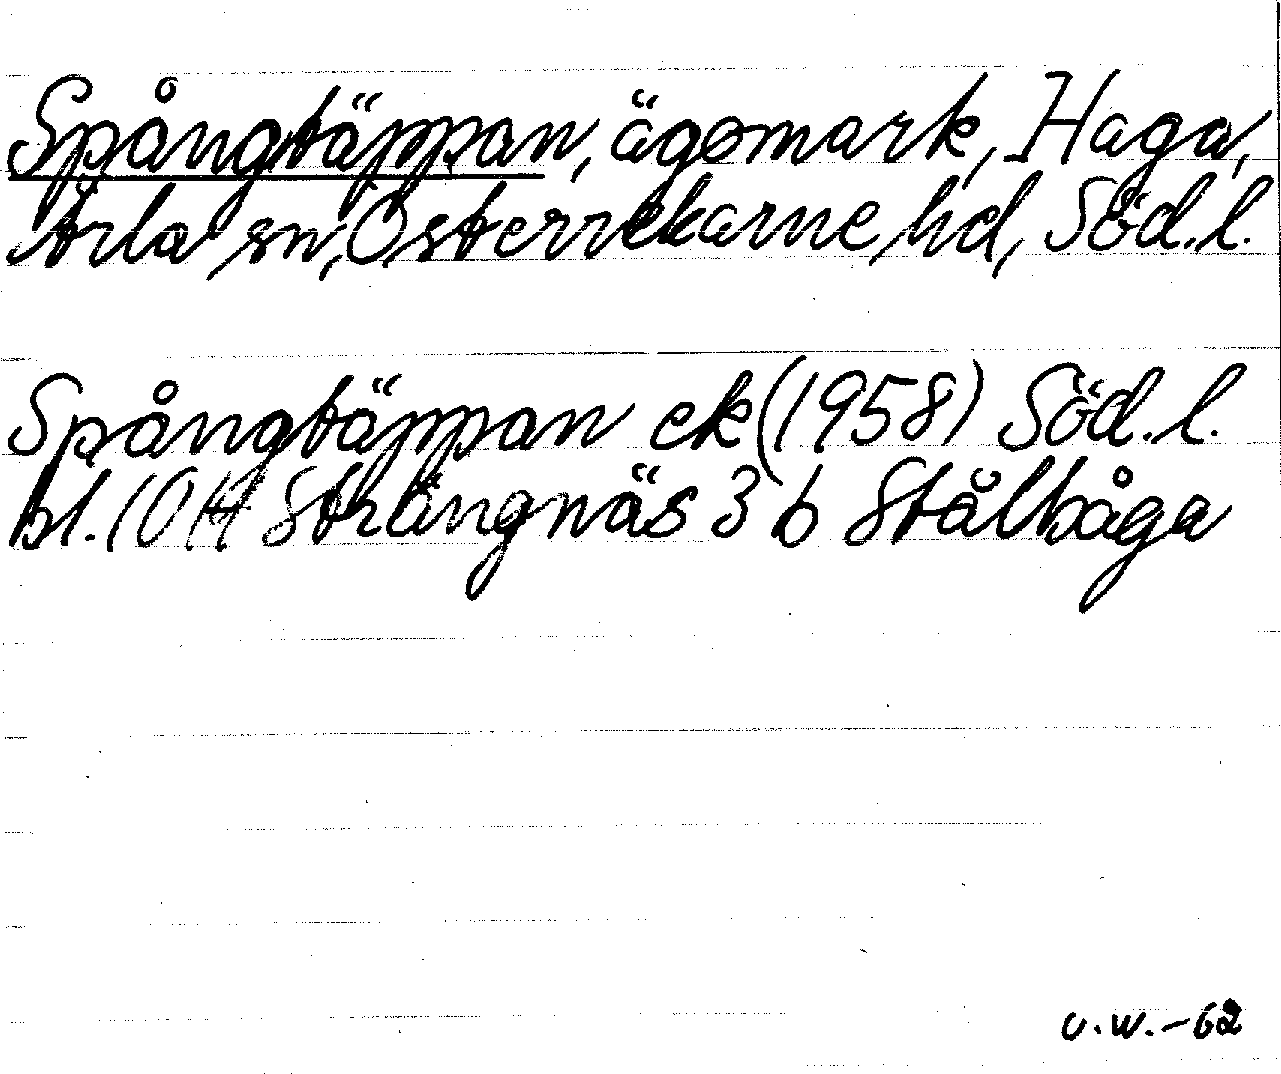 Spångtäppan, ägomark, Haga,
Ärla sn, Österrekarne hd, Söd.l.
Spångtäppan ek (1958) Söd.l.
bl. 10H Strängnäs 3 b Stålbåga
U.W.-62